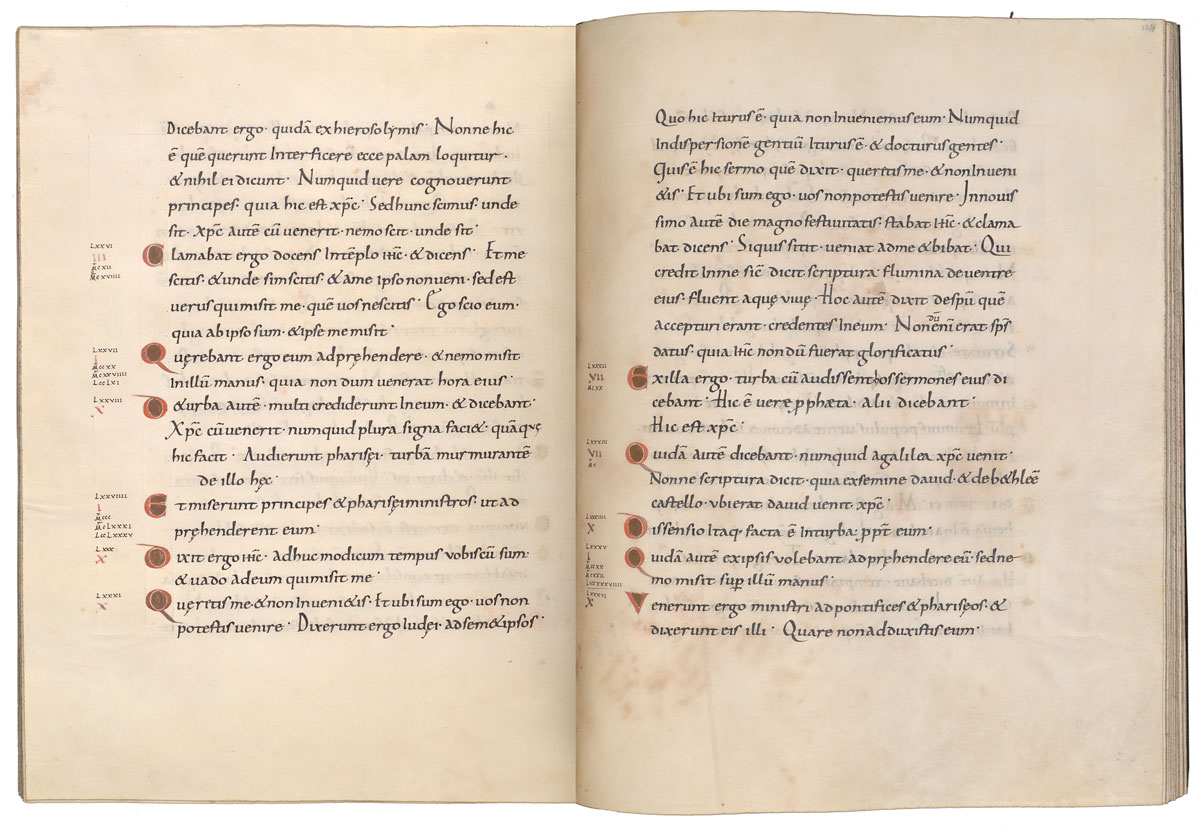 Dicebant ergo· quidā ex hierosolymis· Nonne hic
ē quē querunt Interficere ecce palam loquitur·
& nihil ei dicunt· Numquid vere cognoverunt
principes· quia hic est xp̄c· Sed hunc scimus· unde
sit· Xp̄c autē cū venerit· nemo scit· unde sit·
LXXVI
III
Clamabat ergo docens Intēplo ihc̄· & dicens· Et me
scitis· & unde sim scitis· & a me ipso non veni· sed est
verus qui misit me· quē vos nescitis· Ego scio eum·
quia ab ipso sum· & ipse me misit·
LXXVII
I
Quęrebant ergo eum adpręhendere· & nemo misit
In illū manus· quia non dum venerat hora eius·
LXXVIII
X
De turba autē· multi crediderunt In eum· & dicebant·
Xp̄c cū venerit· numquid plura signa faci&· quā quę
hic facit· Audierunt pharisęi· turbā murmurantē
de illo hęc·
LXXVIIII
I
Et miserunt principes & pharisęi ministros· ut ad
pręhenderent eum·
LXXX
X
Dixit ergo ihc̄· Adhuc modicum tempus vobiscū sum·
& vado ad eum qui misit me·
LXXXI
X
Quęretis me· & non Inveni&is· Et ubi sum ego· vos non
potestis venire· Dixerunt ergo Iudęi· ad sem&ipsos·
124
Quo hic Iturus ē· quia non Inveniemus eum· Numquid
In dispersionē gentiū Iturus ē· & docturus gentes·
Quis ē hic sermo quē dixit· queretis me· & non Inveni
&is· Et ubi sum ego· vos non potestis venire· In novis
simo autē die magno festivitatis· stabat ihc̄· & clama
bat dicens· Si quis sitit· veniat ad me & bibat· Qui
credit In me sic̄ dicit scriptura· flumina de ventre
eius· fluent aquę vivę· Hoc autē dixit de spū quē
accepturi erant· credentes In eum· Non enī dū erat sps̄
datus· quia ihc̄ non dū fuerat glorificatus·
LXXXII
VII
Ex illa ergo· turba cū audissent hos sermones eius di
cebant· Hic ē verę p̄phęta· Alii dicebant·
Hic est xp̄c·
LXXXIII
VII
Quidā autē dicebant· numquid a galilea xp̄c venit·
Nonne scriptura dicit· quia ex semine david· & de b&hleē
castello· ubi erat david venit xp̄c·
LXXXIIII
X
Dissensio Itaq· facta ē In turba· ppt̄ eum·
LXXXV
I
Quidā autē ex ipsis volebant adpręhendere eū· sed ne
mo misit sup̄ illū manus·
LXXXVI
X
Venerunt ergo ministri ad pontifices & phariseos· &
dixerunt eis illi· Quare non adduxistis eum·